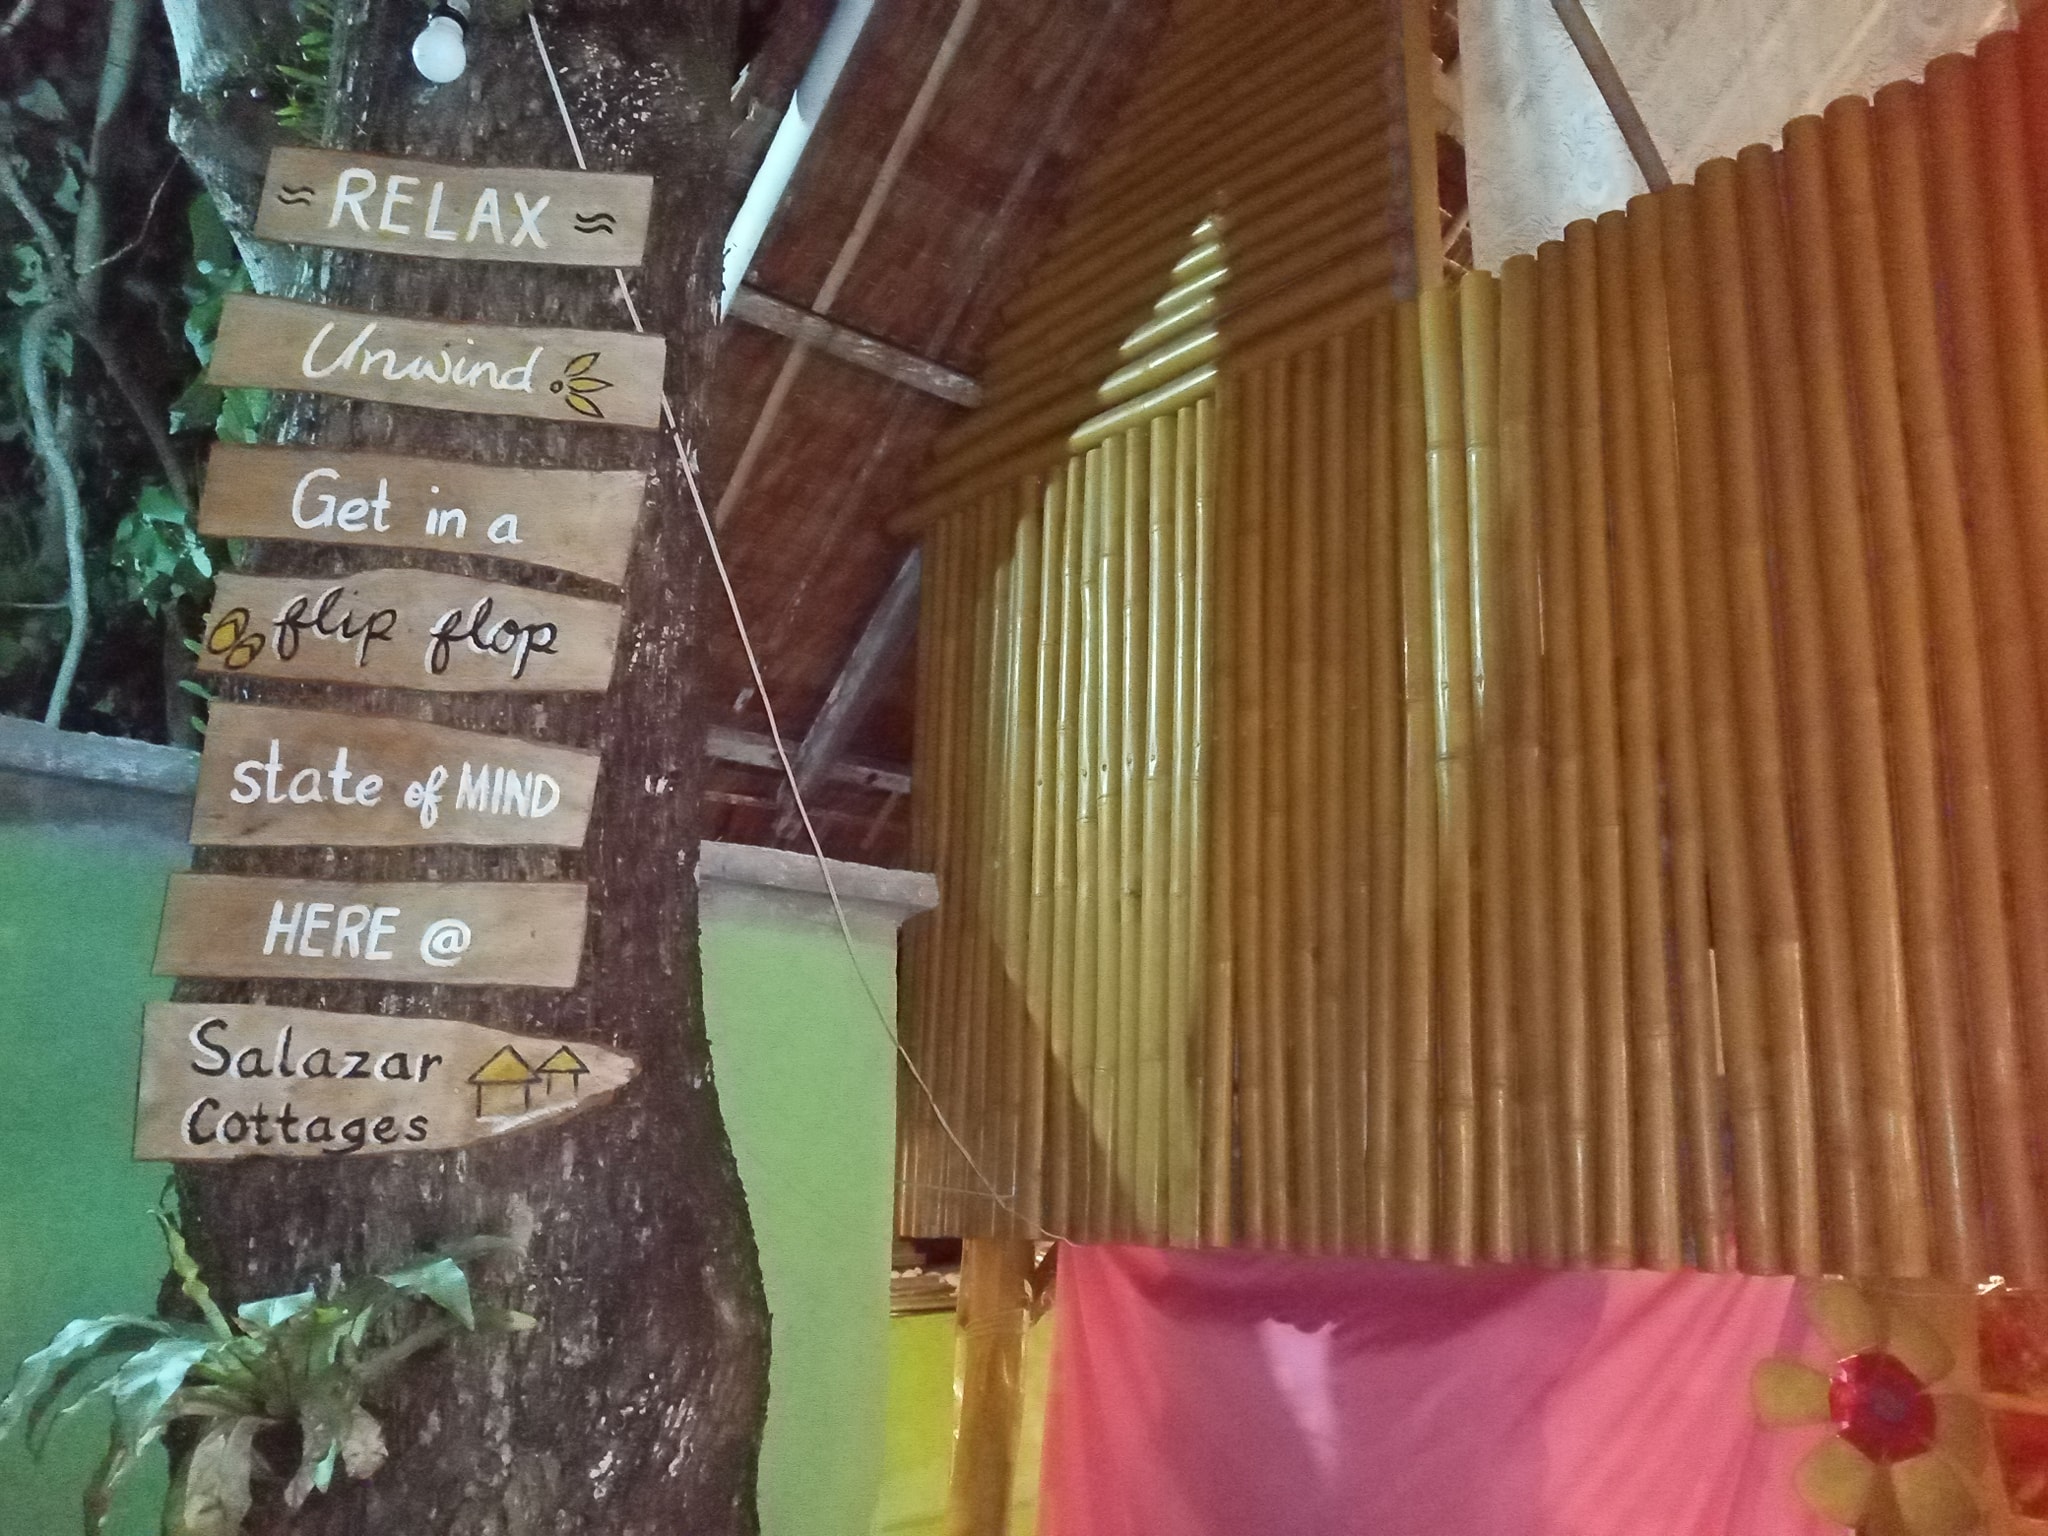 RELAX
Unwind
Get in a
flip flop
state of MIND
HERE @
Salazar
Cottages